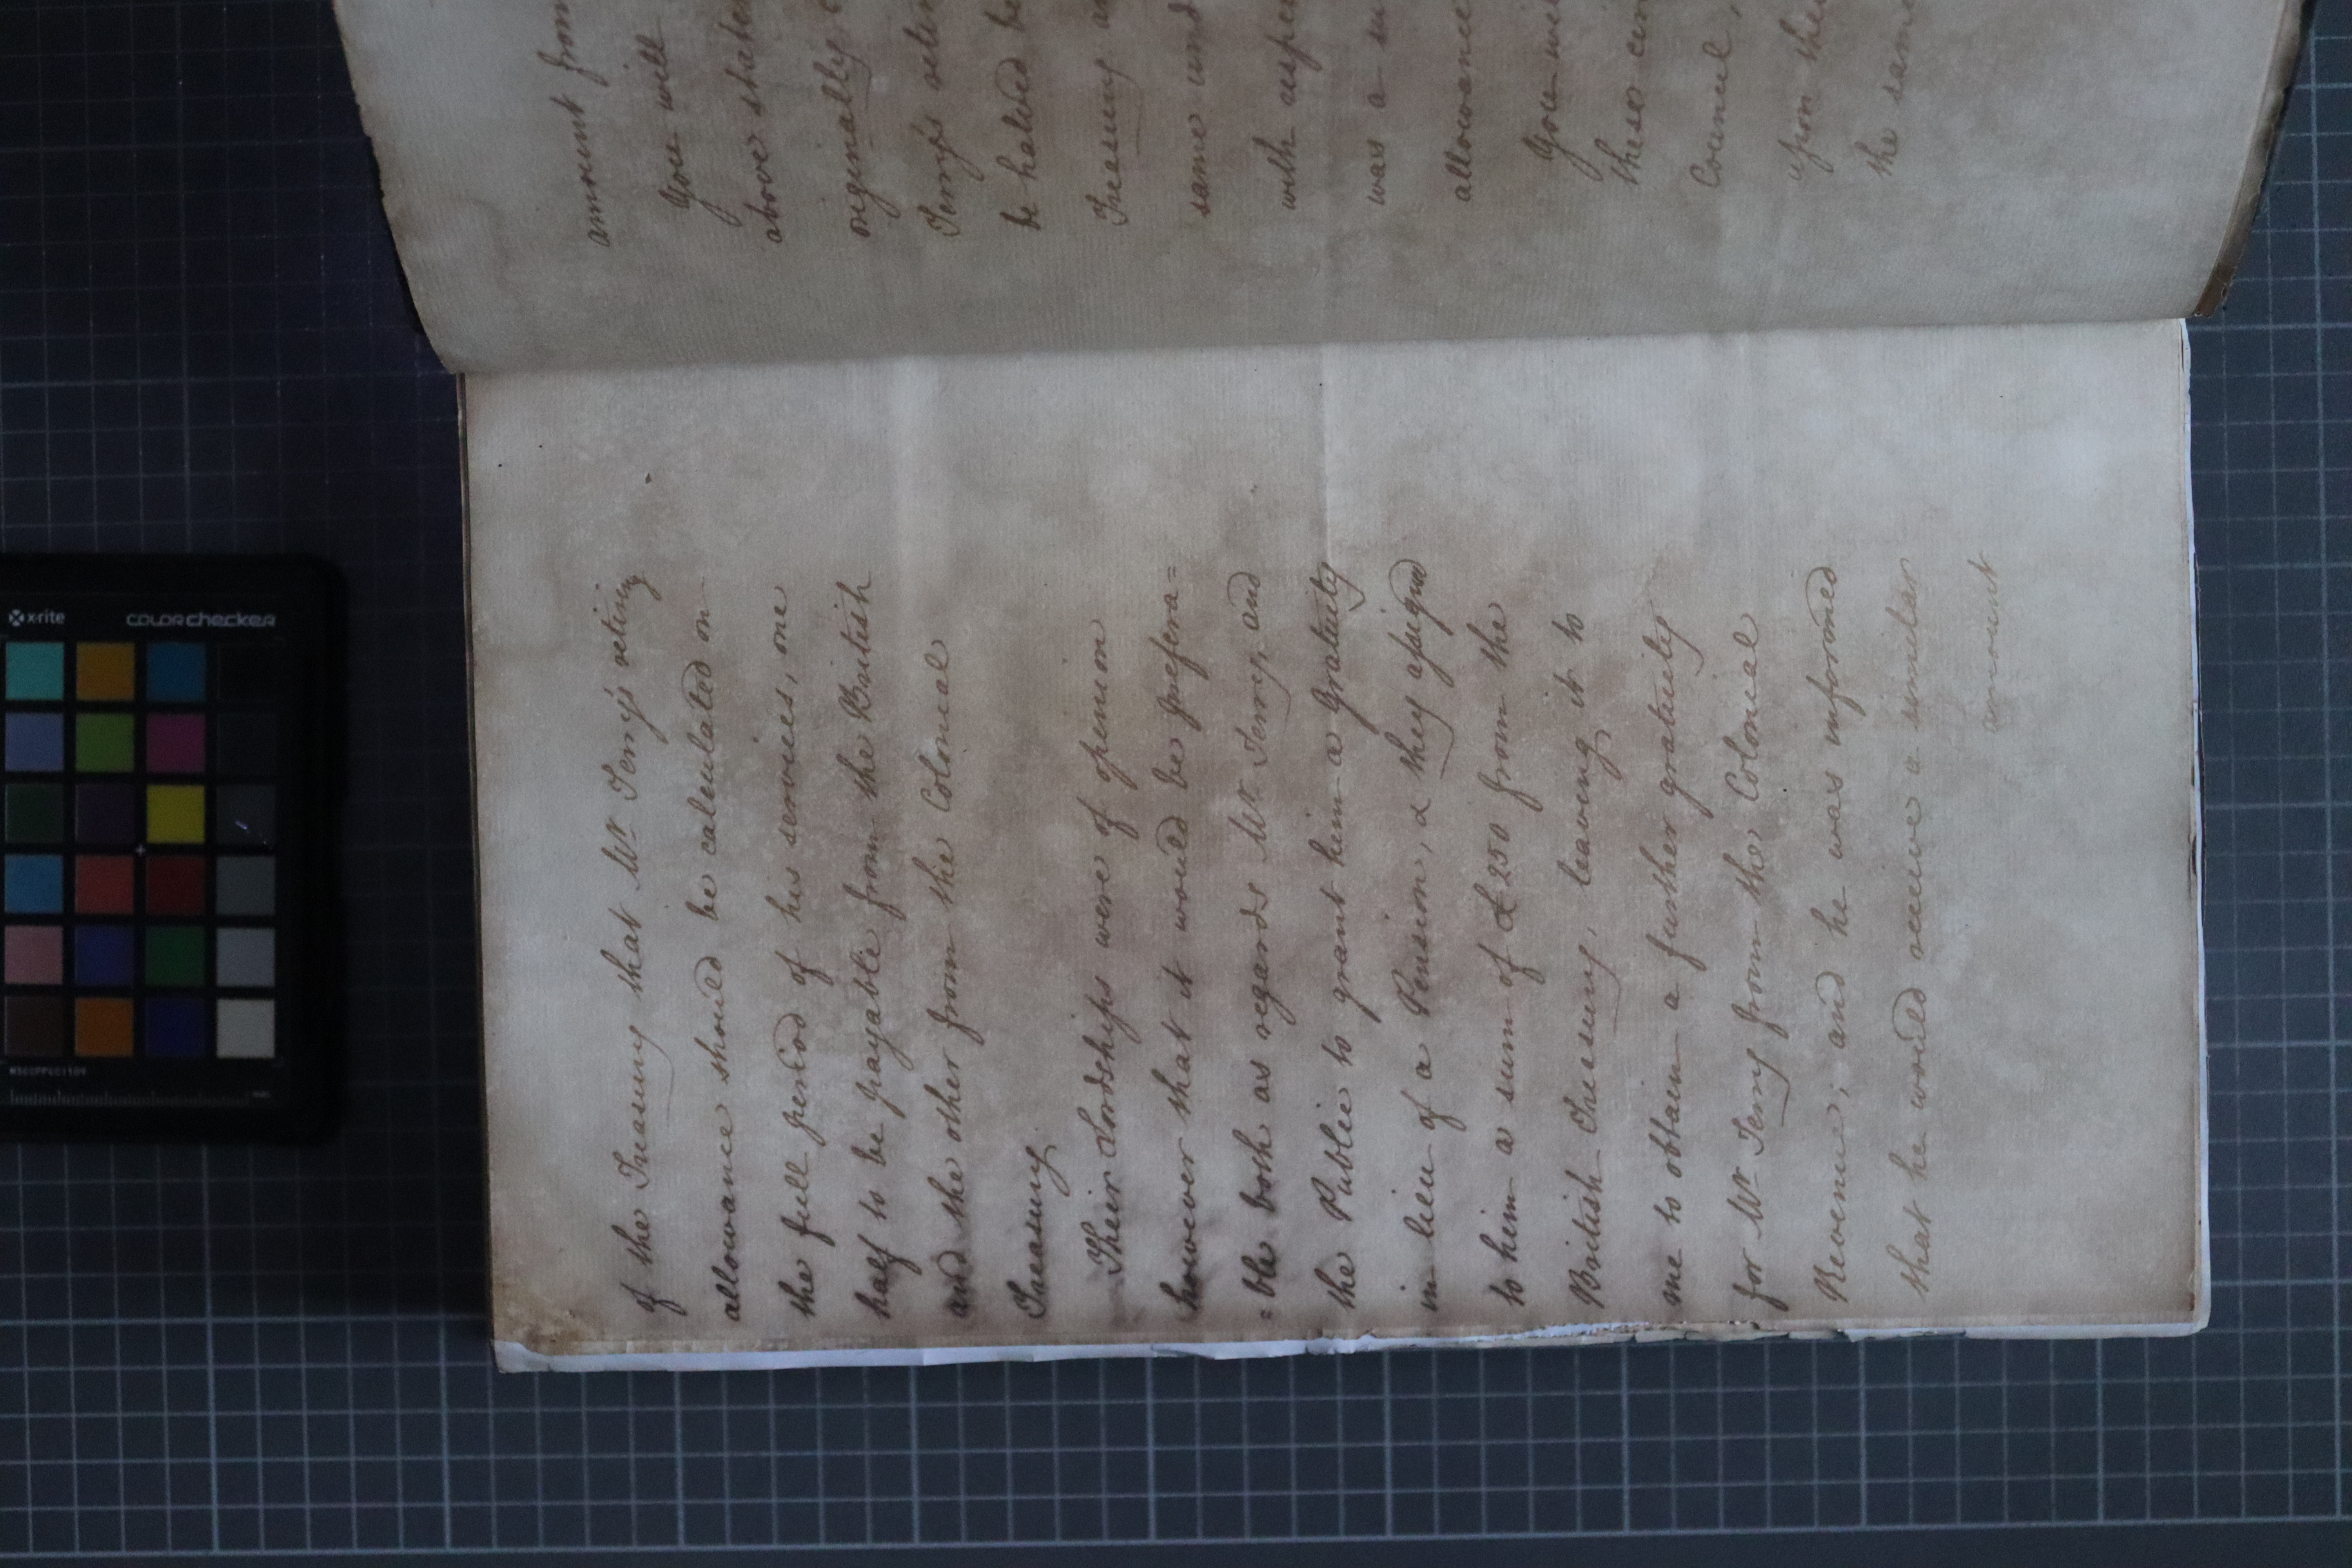 of the Treasury that Mr. Terry's retiring
allowance should be calculated on
the full period of his services, one
half to be payable from the British
and the other from the Colonial
Treasury.
Their Lordships were of opinion
however that it would be prefera=
=ble both as regards Mr. Terry, and
the Public to grant him a Gratuity
in lieu of a Pension, & they assigned
to him a sum of £250 from the
British Treasury, leaving it to
me to obtain a further gratuity
for Mr Terry from the Colonial
Revenue; and he was informed
that he would receive a similar
amount
amount from
You will
above state
originally
Terry's retir
be halved be
Treasury an
same und
with respec
was a su
allowance
You wi
these cir
Council,
upon the
the same
x-rite
colorchecker